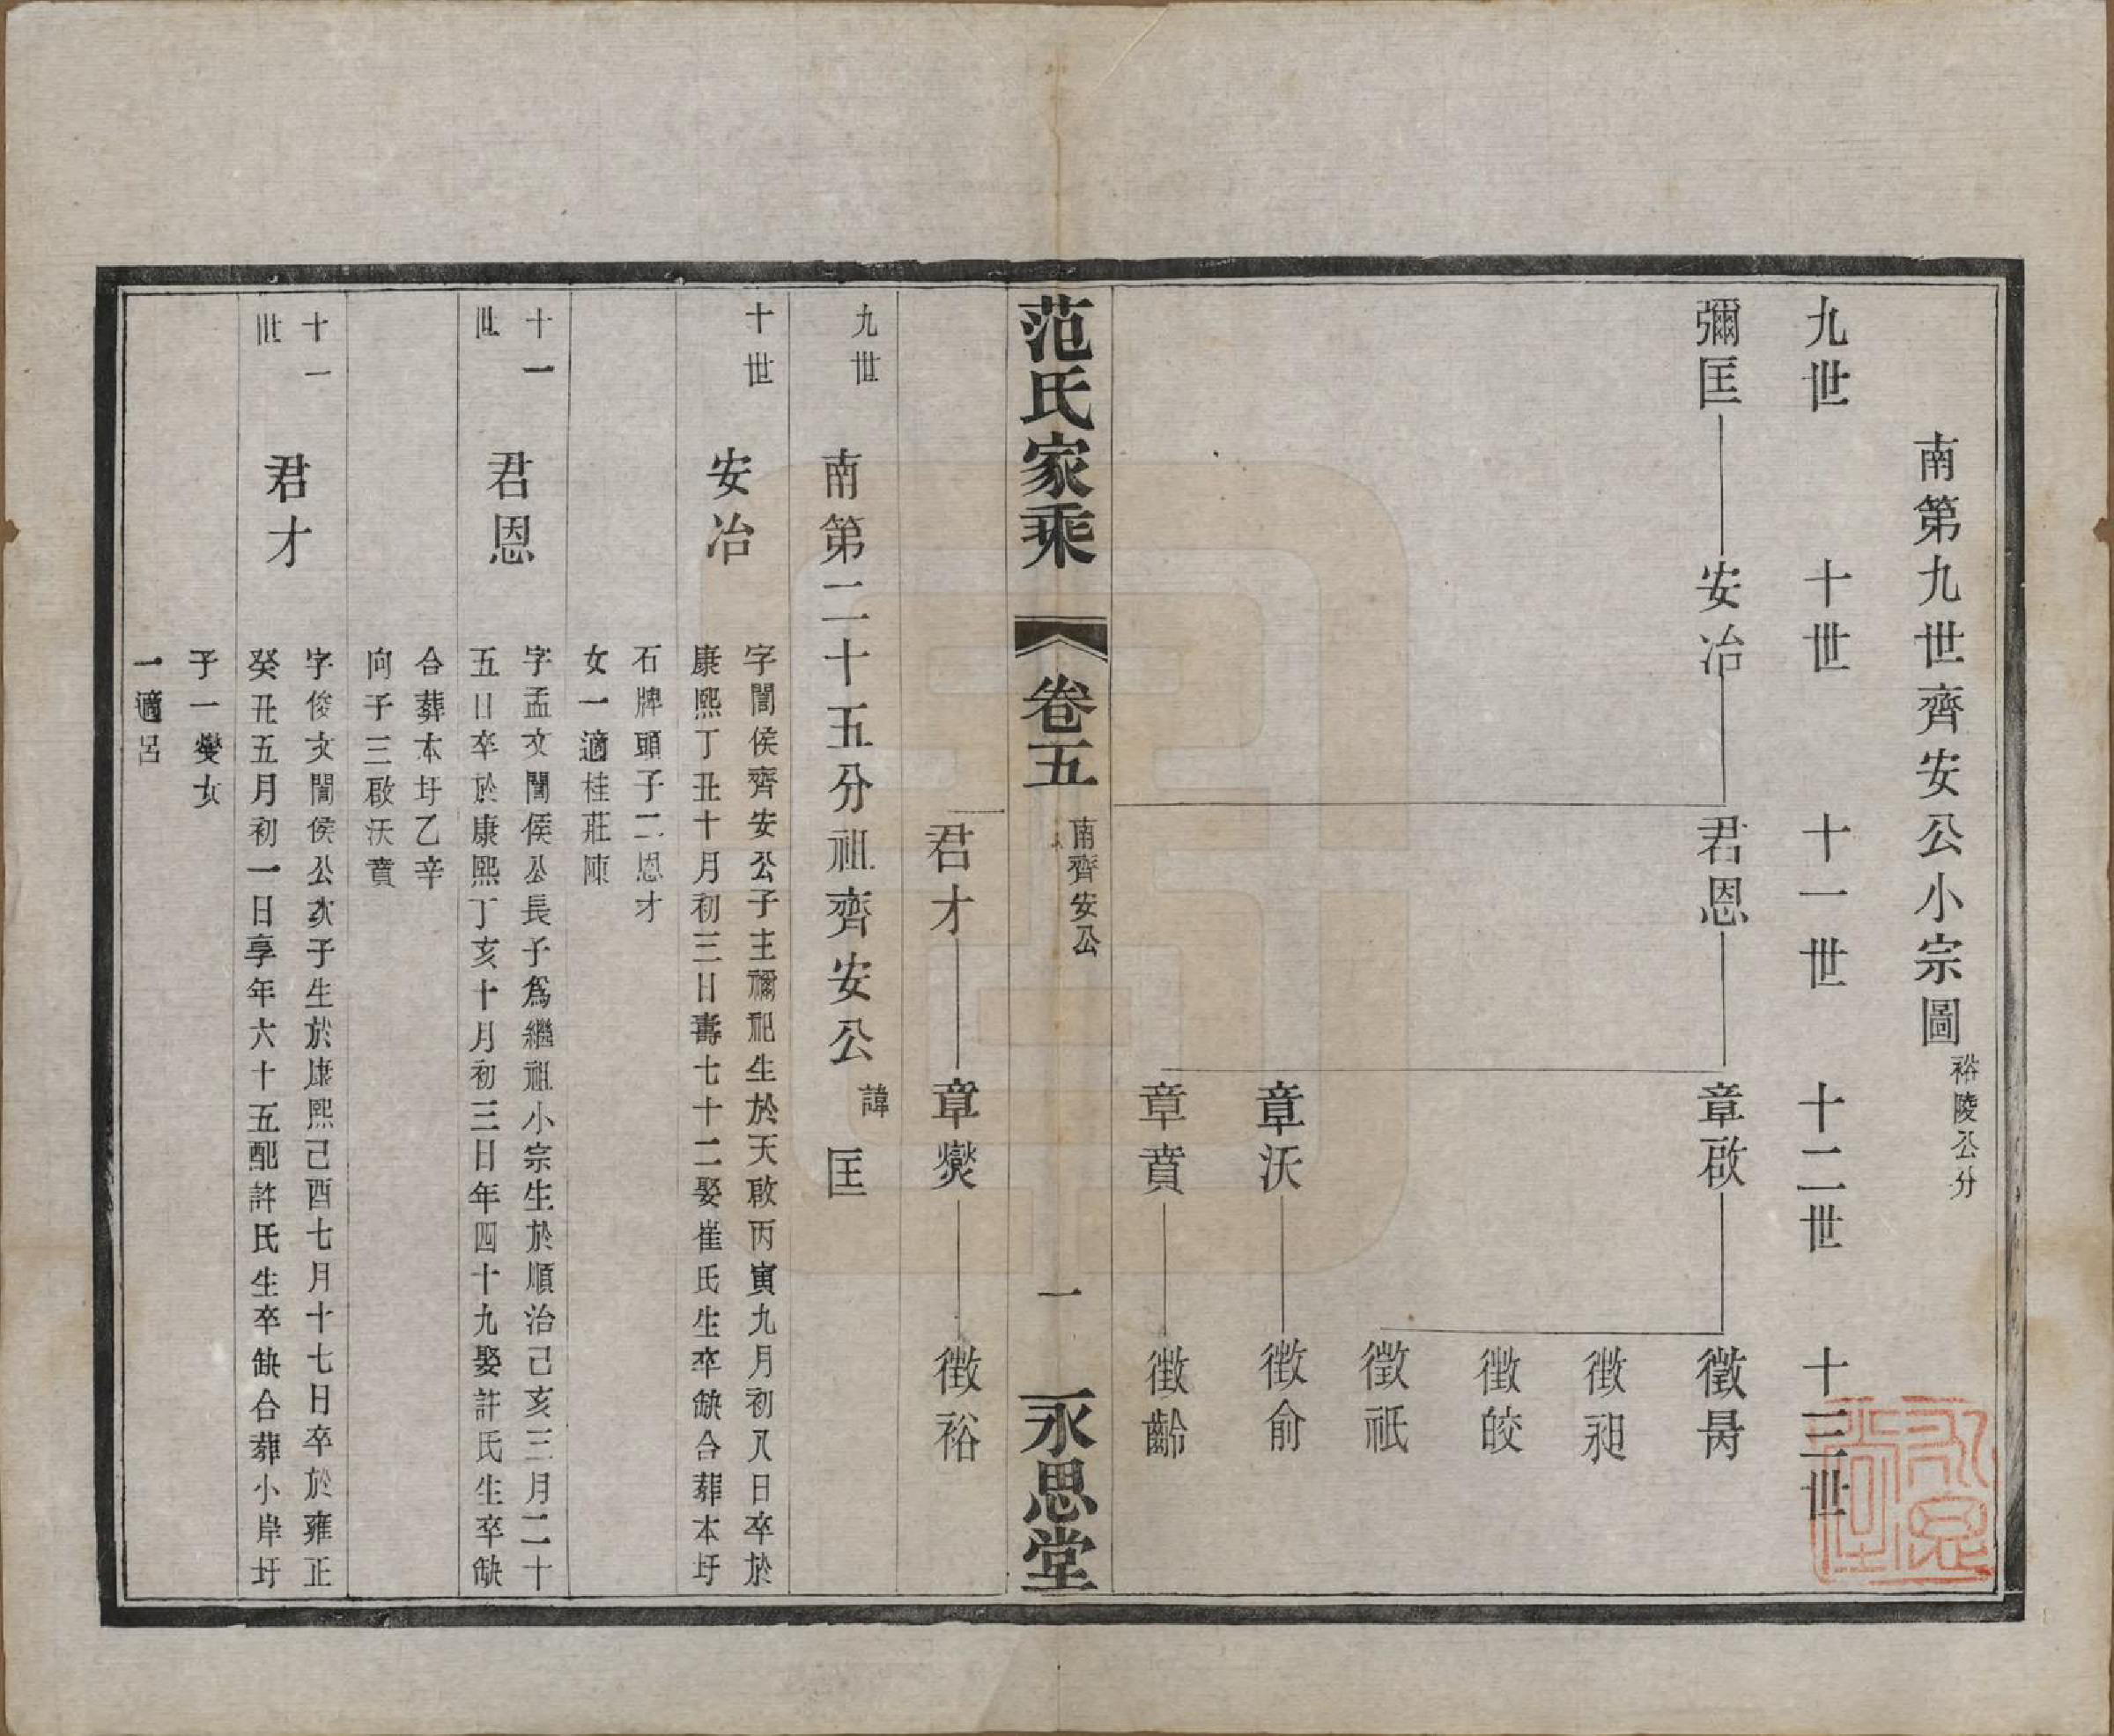 南第九世齊安公小宗圖 裕陵公分
九世 十世 十一世 十二世 十三世
彌匡 安冶 君恩 章啟 徵昺
徵昶
徵皎
徵祇
章沃 徵俞
章賁 徵齡
范氏家乘 卷五 南齊安公 一 永思堂
君才 章燮 徵裕
九世 南第二十五分祖齊安公 諱 匡
十世 安冶 字誾侯齊安公子主禰祀生於天啟丙寅九月初八日卒於
康熙丁丑十月初三日壽七十二娶崔氏生卒缺合葬本圩
石牌頭子二恩才
女一適桂莊陳
十一世 君恩 字孟文誾侯公長子為繼祖小宗生於順治己亥三月二十
五日卒於康熙丁亥十月初三日年四十九娶許氏生卒缺
合葬本圩乙辛
向子三啟沃賁
十一世 君才 字俊文誾侯公次子生於康熙己酉七月十七日卒於雍正
癸丑五月初一日享年六十五配許氏生卒缺合葬小岸圩
子一燮女
一適呂
永思堂